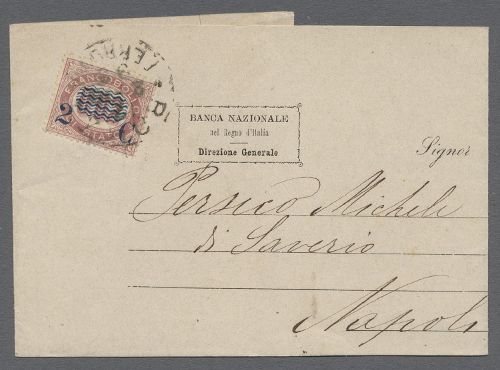 FRANCO
2 C
BANCA NAZIONALE
nel Regno d'Italia
Direzione Generale
Signor
Persico Michele
di Saverio
Napoli